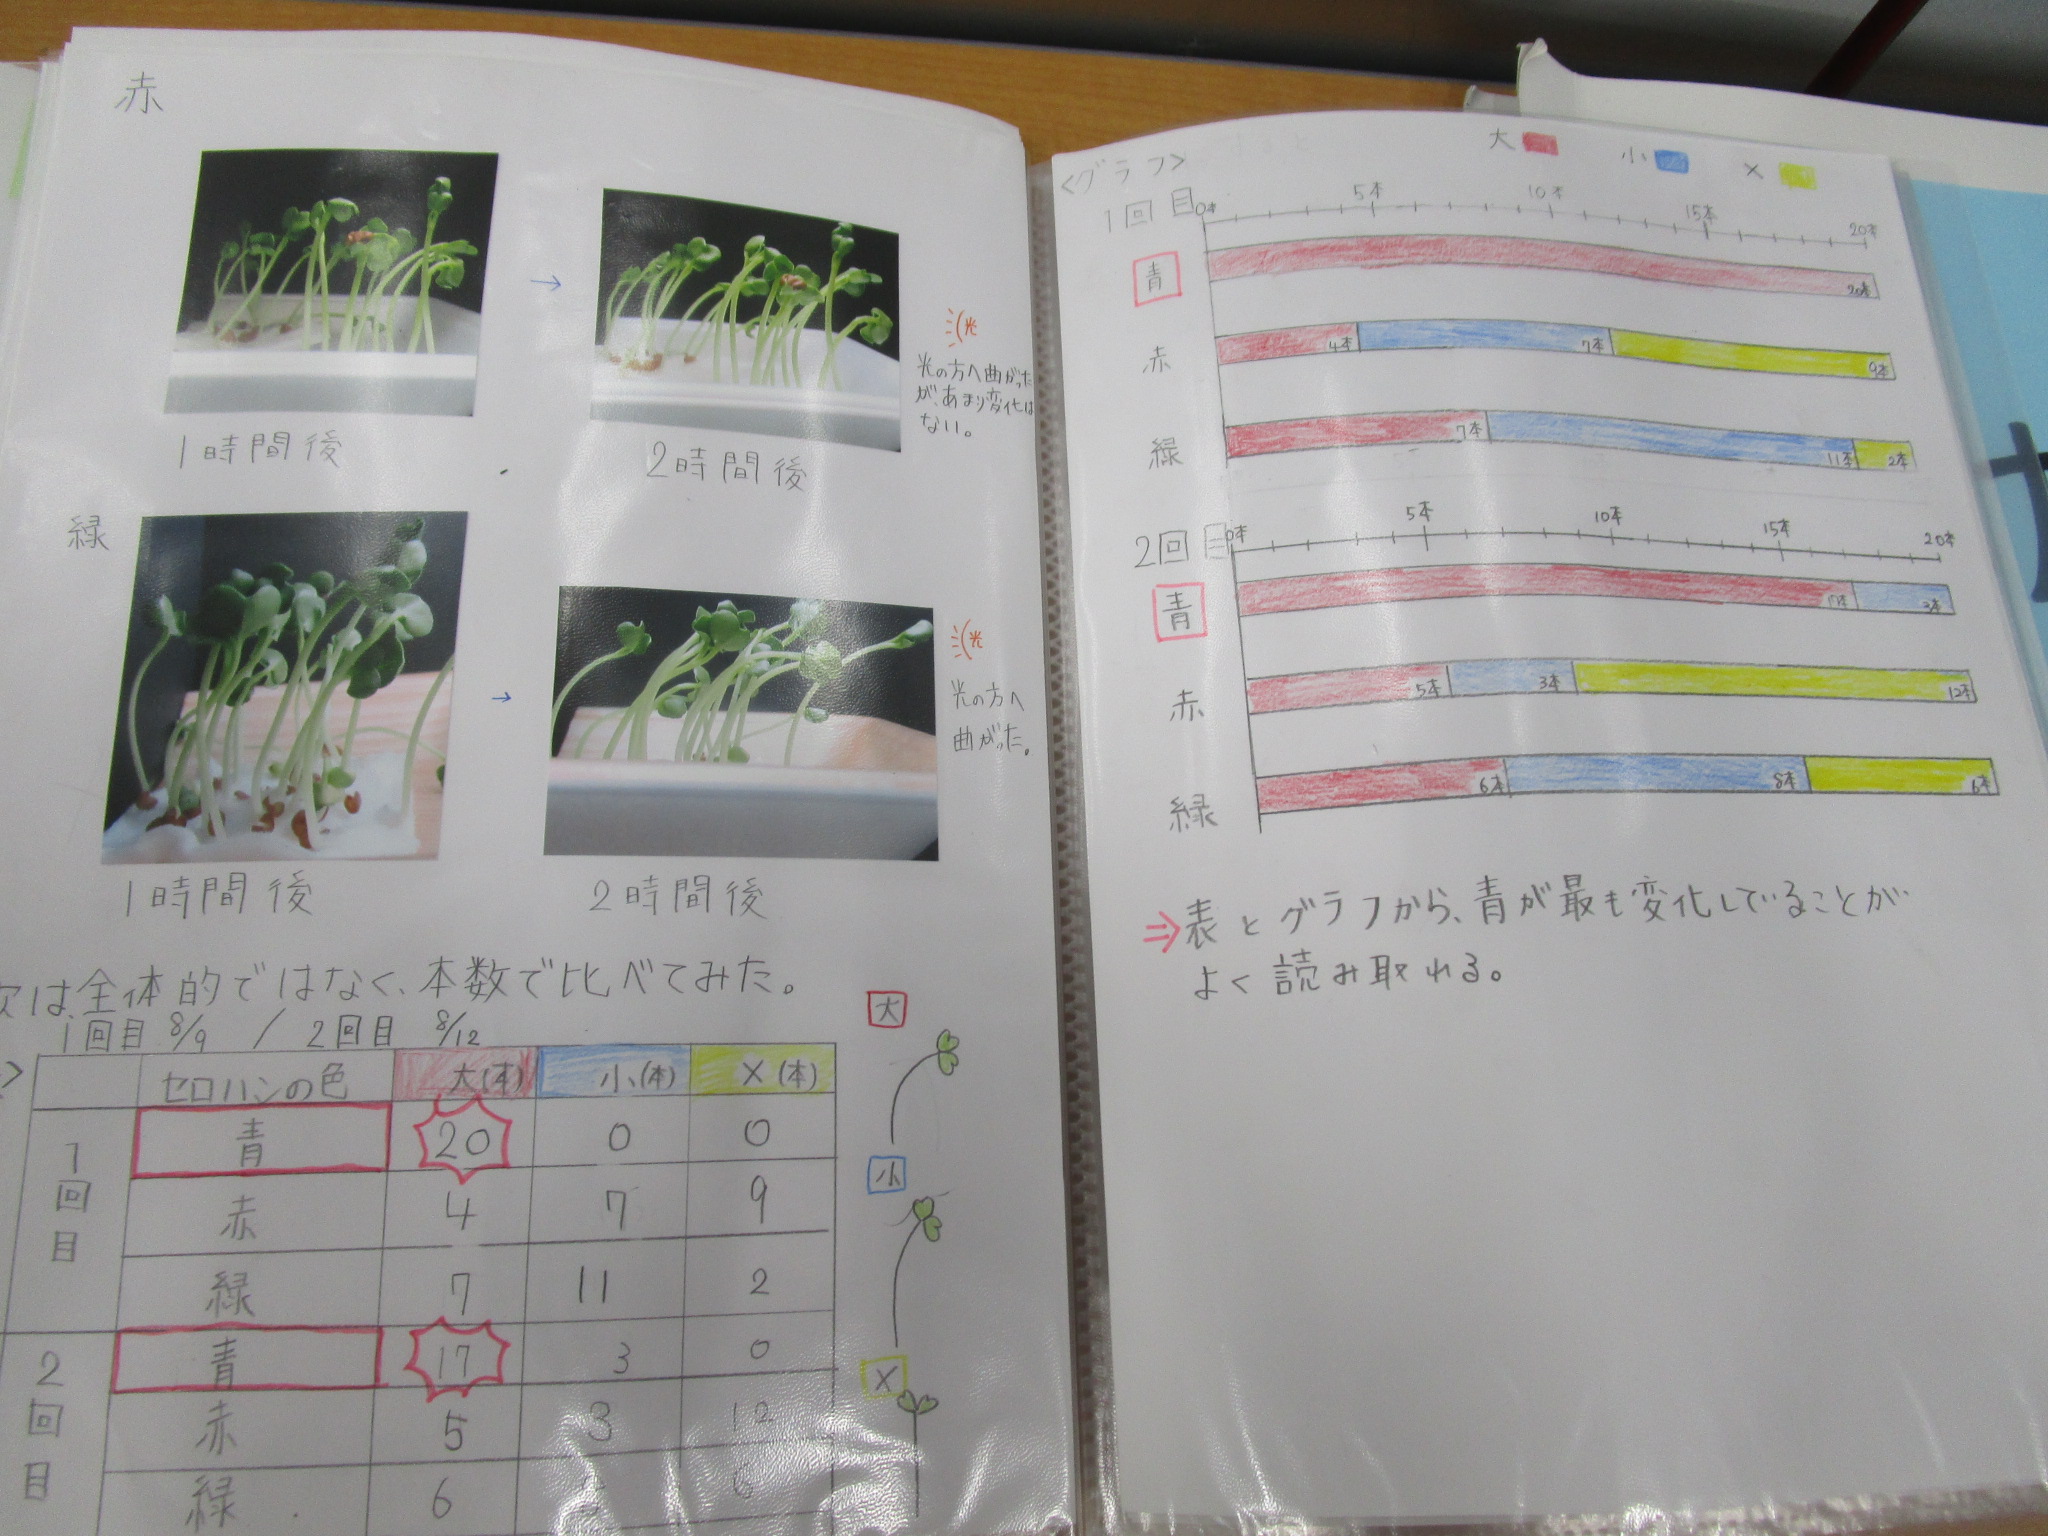 赤
1時間後
2時間後
光
光の方へ曲がった
が、あまり変化は
ない。
緑
1時間後
2時間後
光
光の方へ
曲がった。
次は全体的ではなく、本数で比べてみた。
1回目 8/9 / 2回目 8/12
セロハンの色 大(本) 小(本) ×(本)
1回目
青 20 0 0
赤 4 7 9
緑 7 11 2
2回目
青 17 3 0
赤 5 3 12
緑 6
大
小
×
<グラフ>
大 小 ×
1回目
0本 5本 10本 15本 20本
青 20本
赤 4本 7本 9本
緑 7本 11本 2本
2回目
0本 5本 10本 15本 20本
青 17本 3本
赤 5本 3本 12本
緑 6本 8本 6本
⇒表とグラフから、青が最も変化していることが
よく読み取れる。